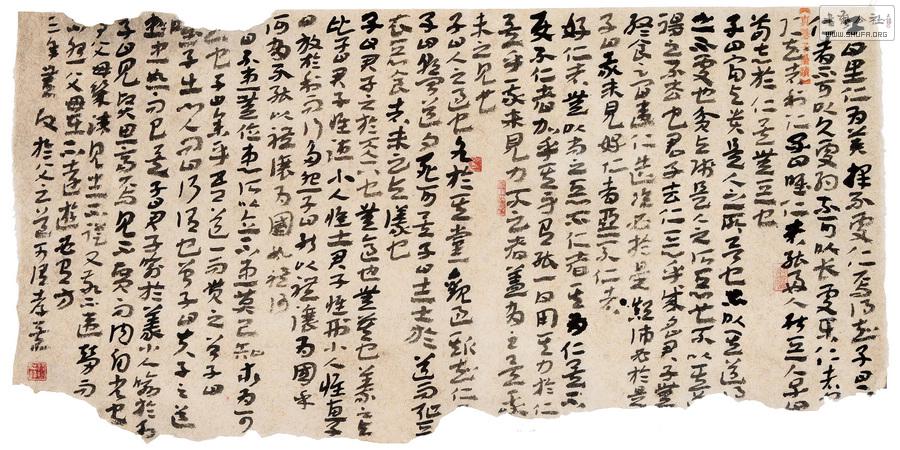 子曰里仁为美择不处仁焉得知子曰不
仁者不可以久處約不可以长處樂仁者
仁知者利仁子曰唯仁者能好人能惡人子曰
苟志於仁矣無惡也
子曰富与貴是人之所欲也不以其道
得之不處也貧与賤是人之所惡也不以其道
得之不去也君子去仁惡乎成名君子無
終食之間違仁造次必於是顛沛必於是
子曰我未見好仁者惡不仁者
好仁者無以尚之惡不仁者其为仁矣不
使不仁者加乎其身有能一日用其力於仁
矣乎我未見力不足者蓋有之矣我
未之見也
子曰人之過也各於其黨觀過斯知仁
子曰朝聞道夕死可矣子曰士志於道而恥惡
衣惡食者未足与議也
子曰君子之於天下也無適也無莫也義之与
比子曰君子懷德小人懷土君子懷刑小人懷惠子
曰放於利而行多怨子曰能以禮讓为國乎
何有不能以禮讓为國如禮何
曰不患無位患所以立不患莫己知求为可
知也子曰參乎吾道一以貫之曾子曰
唯子出門人問曰何謂也曾子曰夫子之道
忠恕而已矣子曰君子喻於義小人喻於利
子曰見賢思齊焉見不賢而內自省也
子曰事父母幾諫見志不從又敬不違勞而
不怨子曰父母在不遠遊遊必有方
三年無改於父之道可謂孝矣
WWW.SHUFA.ORG